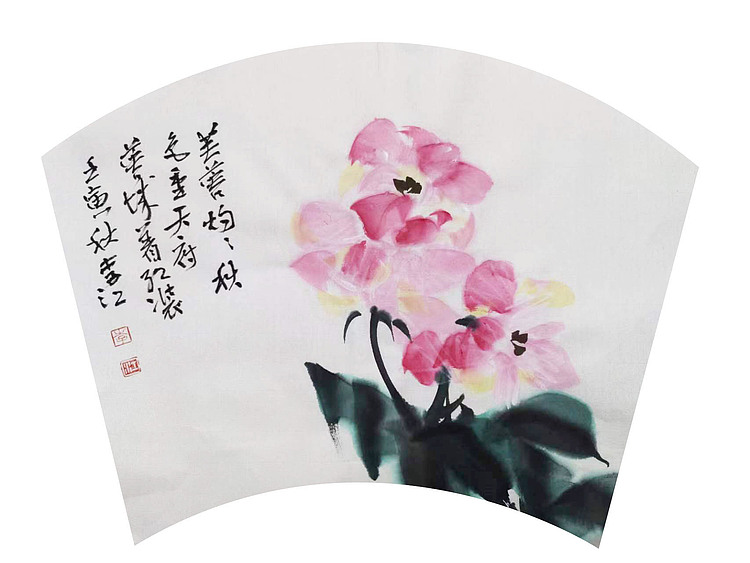 芙蓉灼々秋
色重天府
华城着红装
壬寅秋李江